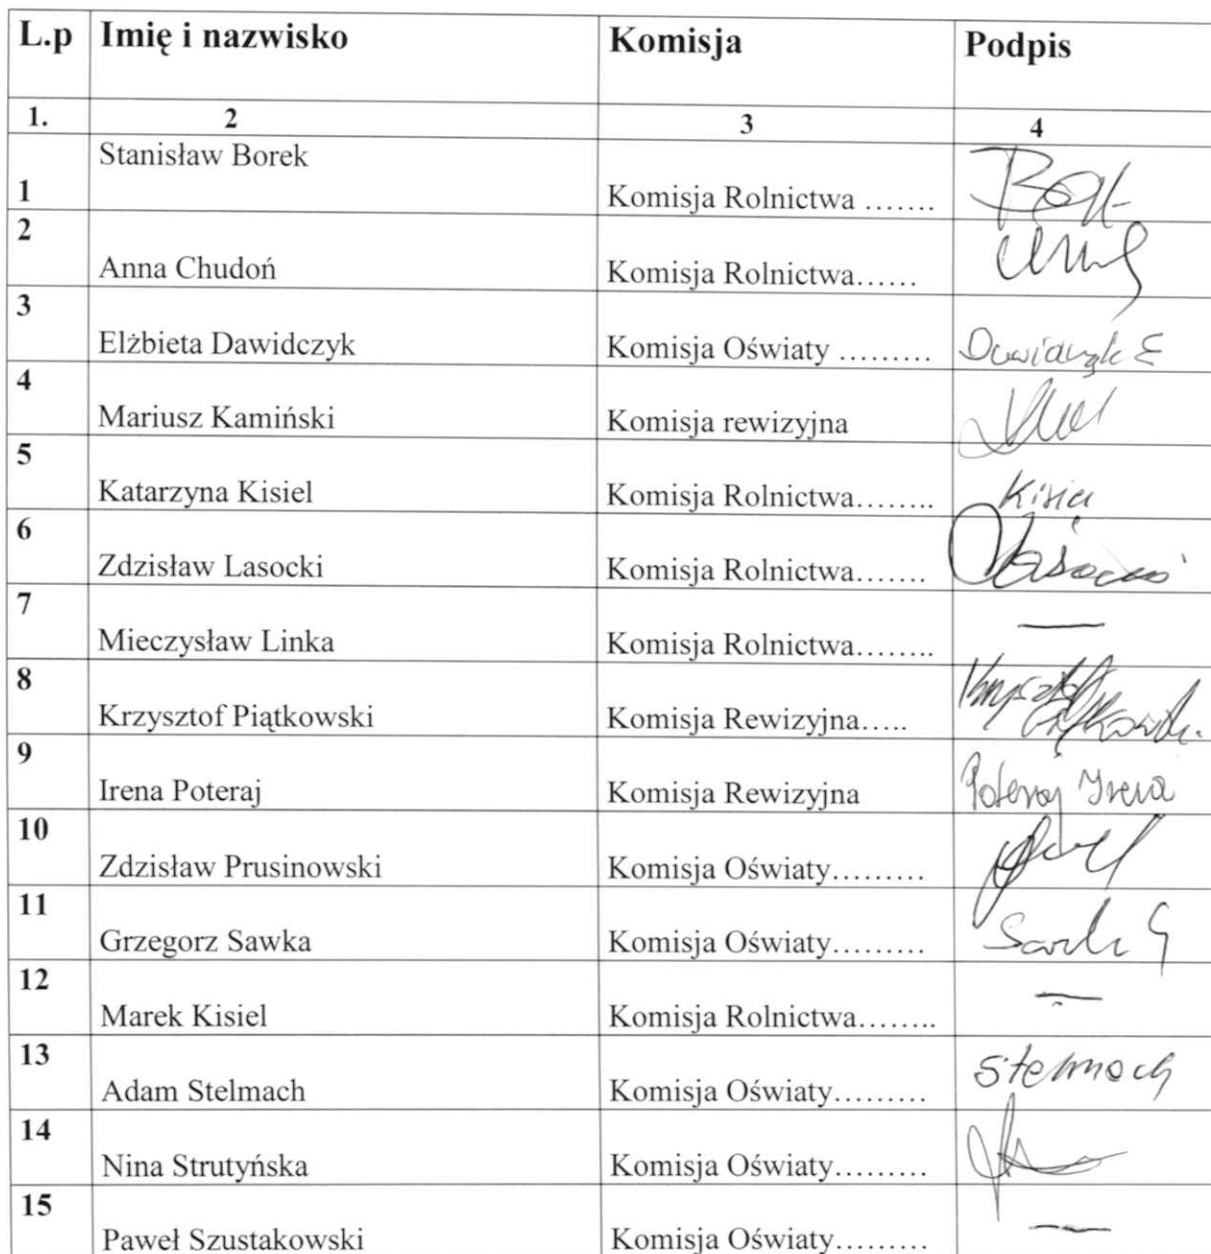 L.p Imię i nazwisko Komisja Podpis
1. 2 3 4
1 Stanisław Borek Komisja Rolnictwa .......
2 Anna Chudoń Komisja Rolnictwa......
3 Elżbieta Dawidczyk Komisja Oświaty ......... Dawidczyk E
4 Mariusz Kamiński Komisja rewizyjna
5 Katarzyna Kisiel Komisja Rolnictwa........ Kisiel
6 Zdzisław Lasocki Komisja Rolnictwa....... Lasocki
7 Mieczysław Linka Komisja Rolnictwa........ —
8 Krzysztof Piątkowski Komisja Rewizyjna..... Krzysztof Piątkowski
9 Irena Poteraj Komisja Rewizyjna Poteraj Irena
10 Zdzisław Prusinowski Komisja Oświaty.........
11 Grzegorz Sawka Komisja Oświaty......... Sawka G
12 Marek Kisiel Komisja Rolnictwa........ —
13 Adam Stelmach Komisja Oświaty......... Stelmach
14 Nina Strutyńska Komisja Oświaty.........
15 Paweł Szustakowski Komisja Oświaty......... —